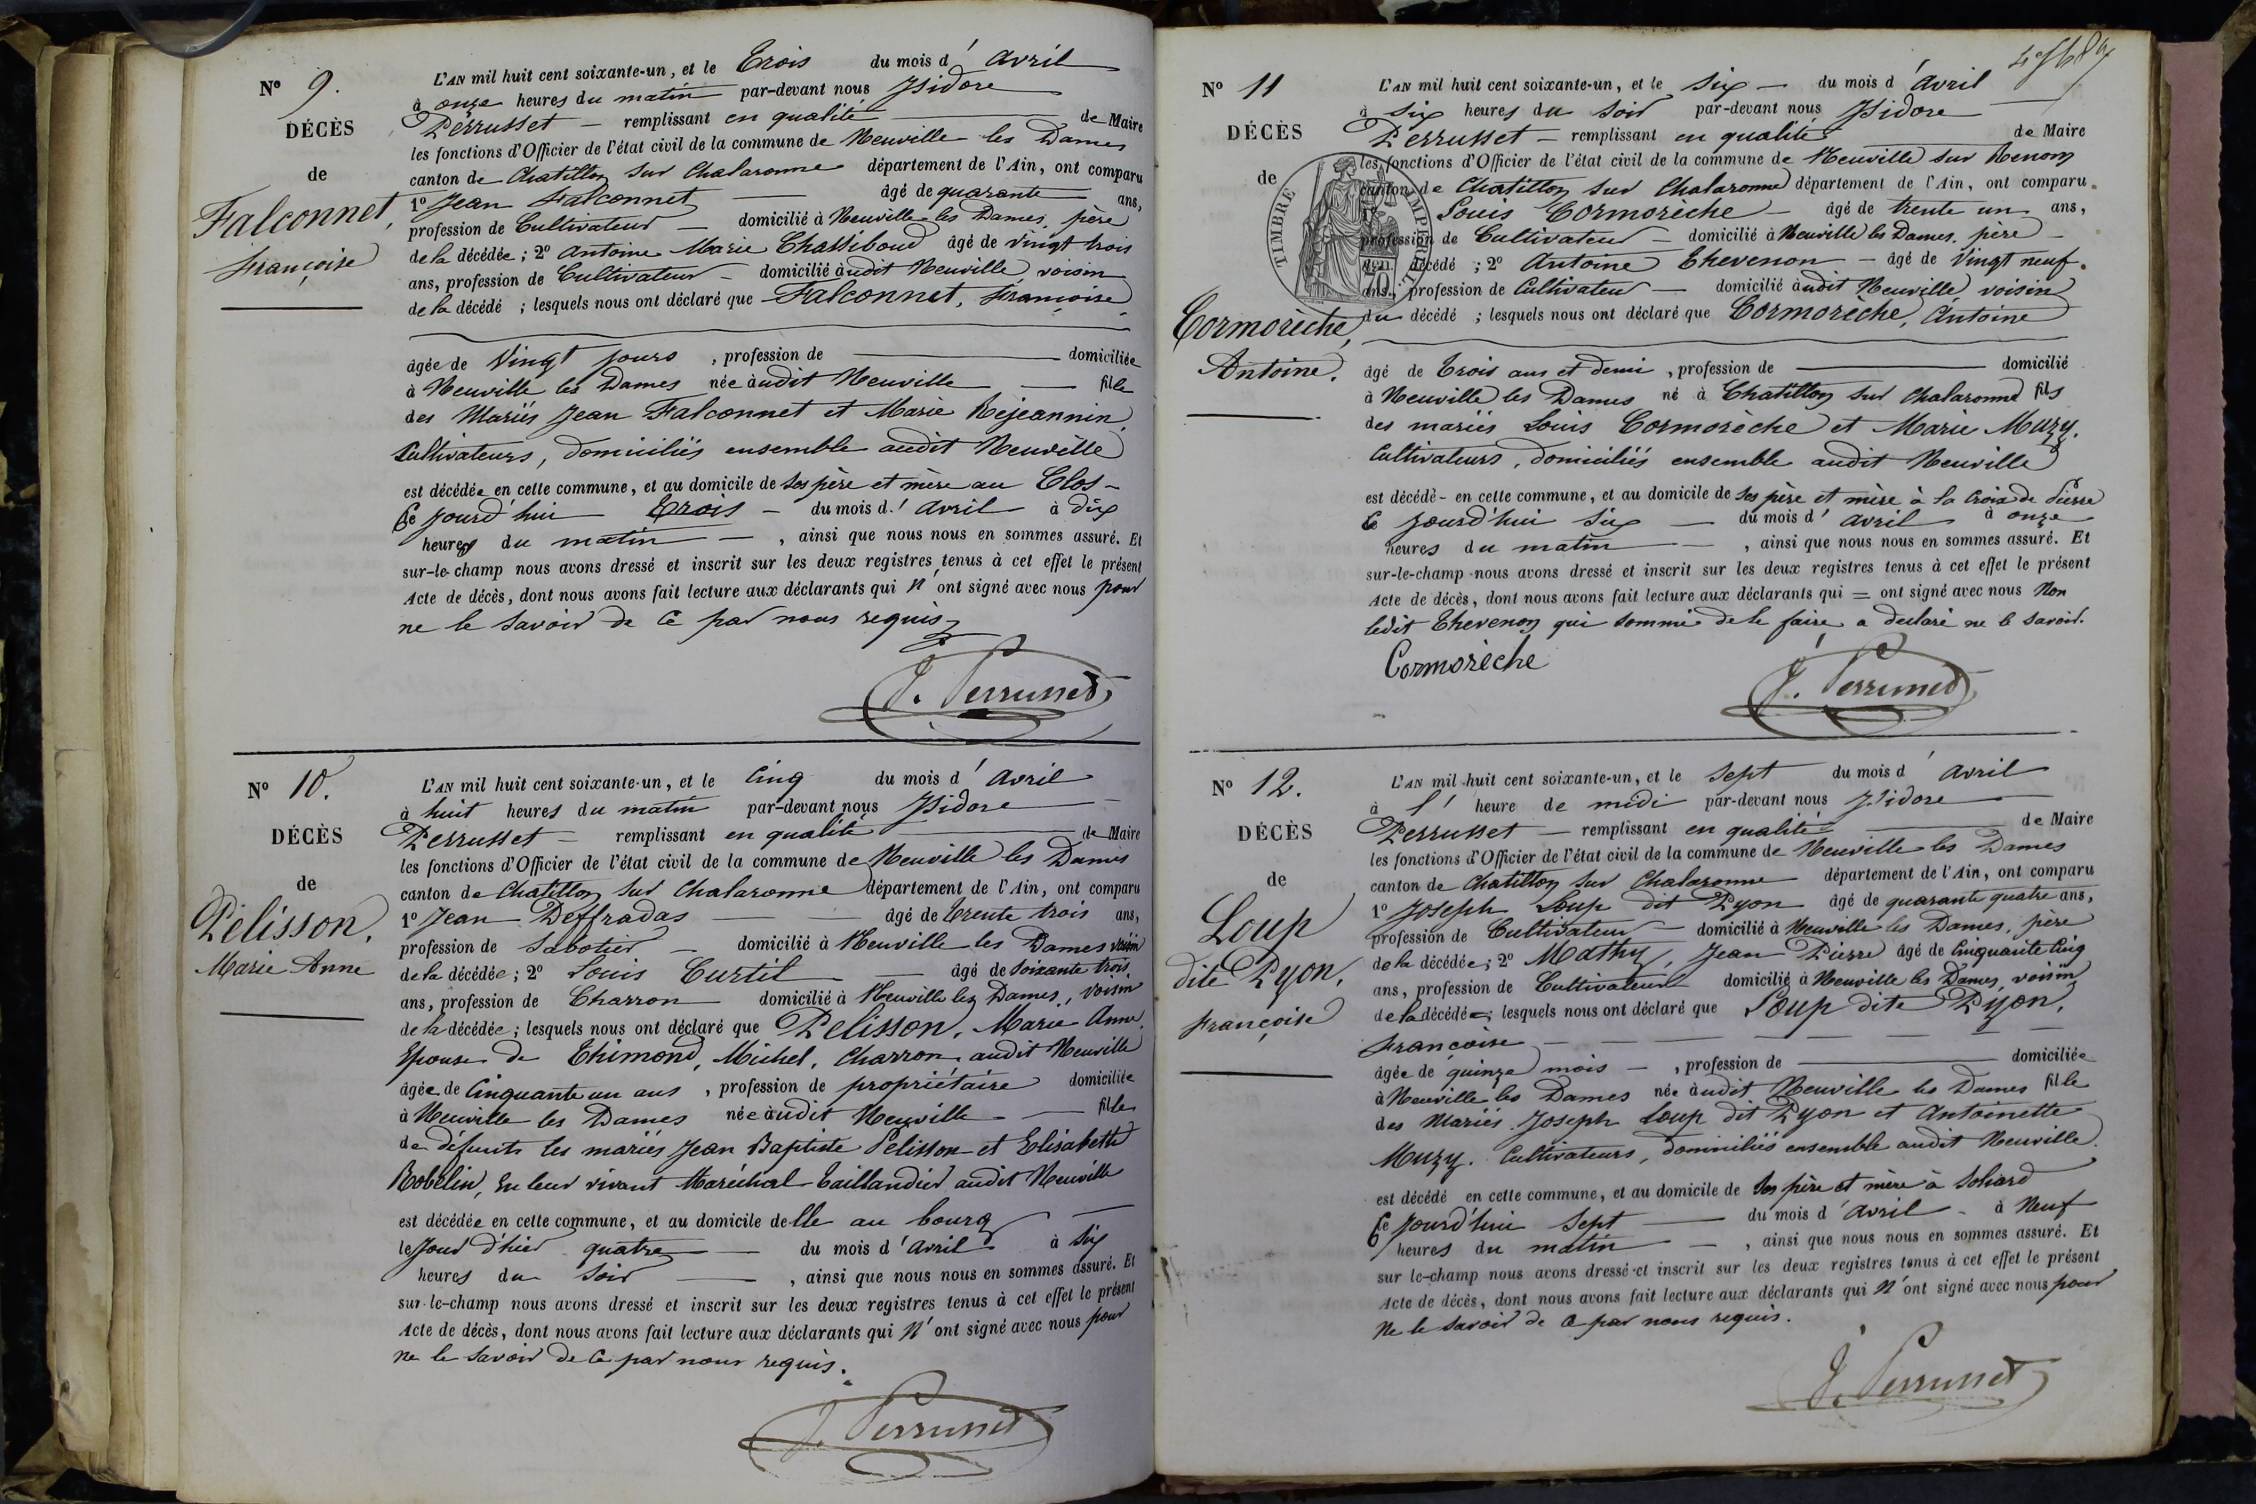 Nº 9.
DÉCÈS
de
Falconnet,
Françoise
L'AN mil huit cent soixante-un, et le Trois du mois d'avril
à onze heures du matin par-devant nous Isidore
Perrusset remplissant en qualité de Maire
les fonctions d'Officier de l'état civil de la commune de Neuville les Dames
canton de Chatillon sur Chalaronne département de l'Ain, ont comparu
1º Jean Falconnet âgé de quarante ans,
profession de Cultivateur domicilié à Neuville les Dames, père
de la décédée ; 2º Antoine Marie Chassiboud âgé de vingt trois
ans, profession de Cultivateur domicilié audit Neuville voisin
de la décédé ; lesquels nous ont déclaré que Falconnet, Françoise
âgée de vingt jours , profession de domiciliée
à Neuville les Dames née audit Neuville fille
des Mariés Jean Falconnet et Marie Rejeannin,
Cultivateurs, domiciliés ensemble audit Neuville
est décédée en cette commune, et au domicile de ses père et mère au Clos
Ce jourd'hui Trois du mois d'avril à dix
heures du matin , ainsi que nous nous en sommes assuré. Et
sur-le-champ nous avons dressé et inscrit sur les deux registres tenus à cet effet le présent
Acte de décès, dont nous avons fait lecture aux déclarants qui n'ont signé avec nous pour
ne le savoir de ce par nous requis
J. Perrusset
Nº 10.
DÉCÈS
de
Pelisson,
Marie Anne
L'AN mil huit cent soixante-un, et le Cinq du mois d'avril
à huit heures du matin par-devant nous Isidore
Perrusset remplissant en qualité de Maire
les fonctions d'Officier de l'état civil de la commune de Neuville les Dames
canton de Chatillon sur Chalaronne département de l'Ain, ont comparu
1º Jean Deffradas âgé de trente trois ans,
profession de Sabotier domicilié à Neuville les Dames voisin
de la décédée ; 2º Louis Curtil âgé de soixante trois
ans, profession de Charron domicilié à Neuville les Dames, voisin
de la décédée ; lesquels nous ont déclaré que Pelisson, Marie Anne,
Epouse de Thimond, Michel, Charron audit Neuville
âgée de Cinquante un ans , profession de propriétaire domiciliée
à Neuville les Dames née audit Neuville fille
de défunts les mariés Jean Baptiste Pelisson et Elisabeth
Robelin, en leur vivant Maréchal Taillandier audit Neuville
est décédée en cette commune, et au domicile delle au bourg
le jour d'hier quatre du mois d'avril à six
heures du soir , ainsi que nous nous en sommes assuré. Et
sur-le-champ nous avons dressé et inscrit sur les deux registres tenus à cet effet le présent
Acte de décès, dont nous avons fait lecture aux déclarants qui n'ont signé avec nous pour
ne le savoir de ce par nous requis.
J. Perrusset
Nº 11
DÉCÈS
de
Cormorèche,
Antoine.
TIMBRE IMPERIAL
L'AN mil huit cent soixante-un, et le six du mois d'avril
à six heures du soir par-devant nous Isidore
Perrusset remplissant en qualité de Maire
les fonctions d'Officier de l'état civil de la commune de Neuville sur Renom
canton de Chatillon sur Chalaronne département de l'Ain, ont comparu
Louis Cormorèche âgé de trente un ans,
profession de Cultivateur domicilié à Neuville les Dames, père
décédé ; 2º Antoine Thevenon âgé de Vingt neuf
ans, profession de Cultivateur domicilié audit Neuville voisin
du décédé ; lesquels nous ont déclaré que Cormorèche, Antoine
âgé de trois ans et demi , profession de domicilié
à Neuville les Dames né à Chatillon sur Chalaronne fils
des mariés Louis Cormorèche et Marie Muzy,
Cultivateurs, domiciliés ensemble audit Neuville
est décédé en cette commune, et au domicile de ses père et mère à la Croix de Pierre
Ce jourd'hui six du mois d'avril à onze
heures du matin , ainsi que nous nous en sommes assuré. Et
sur-le-champ nous avons dressé et inscrit sur les deux registres tenus à cet effet le présent
Acte de décès, dont nous avons fait lecture aux déclarants qui = ont signé avec nous Non
ledit Thevenon qui sommé de le faire a declaré ne le savoir.
Cormorèche
J. Perrusset
Nº 12.
DÉCÈS
de
Loup
dite Pyon,
Françoise
L'AN mil huit cent soixante-un, et le sept du mois d'avril
à l'heure de midi par-devant nous Isidore
Perrusset remplissant en qualité de Maire
les fonctions d'Officier de l'état civil de la commune de Neuville les Dames
canton de Chatillon sur Chalaronne département de l'Ain, ont comparu
1º Joseph Loup dit Pyon âgé de quarante quatre ans,
profession de Cultivateur domicilié à Neuville les Dames, père
de la décédée ; 2º Mathy, Jean Pierre âgé de Cinquante Cinq
ans, profession de Cultivateur domicilié à Neuville les Dames, voisin
de la décédée ; lesquels nous ont déclaré que Loup dite Pyon,
Françoise
âgée de quinze mois , profession de domiciliée
à Neuville les Dames née audit Neuville les Dames fille
des Mariés Joseph Loup dit Pyon et Antoinette
Muzy. Cultivateurs, domiciliés ensemble audit Neuville
est décédé en cette commune, et au domicile de ses père et mère à Soliard
Ce jourd'hui Sept du mois d'avril à Neuf
heures du matin , ainsi que nous nous en sommes assuré. Et
sur le-champ nous avons dressé et inscrit sur les deux registres tenus à cet effet le présent
Acte de décès, dont nous avons fait lecture aux déclarants qui n'ont signé avec nous pour
ne le savoir de ce par nous requis.
J. Perrusset